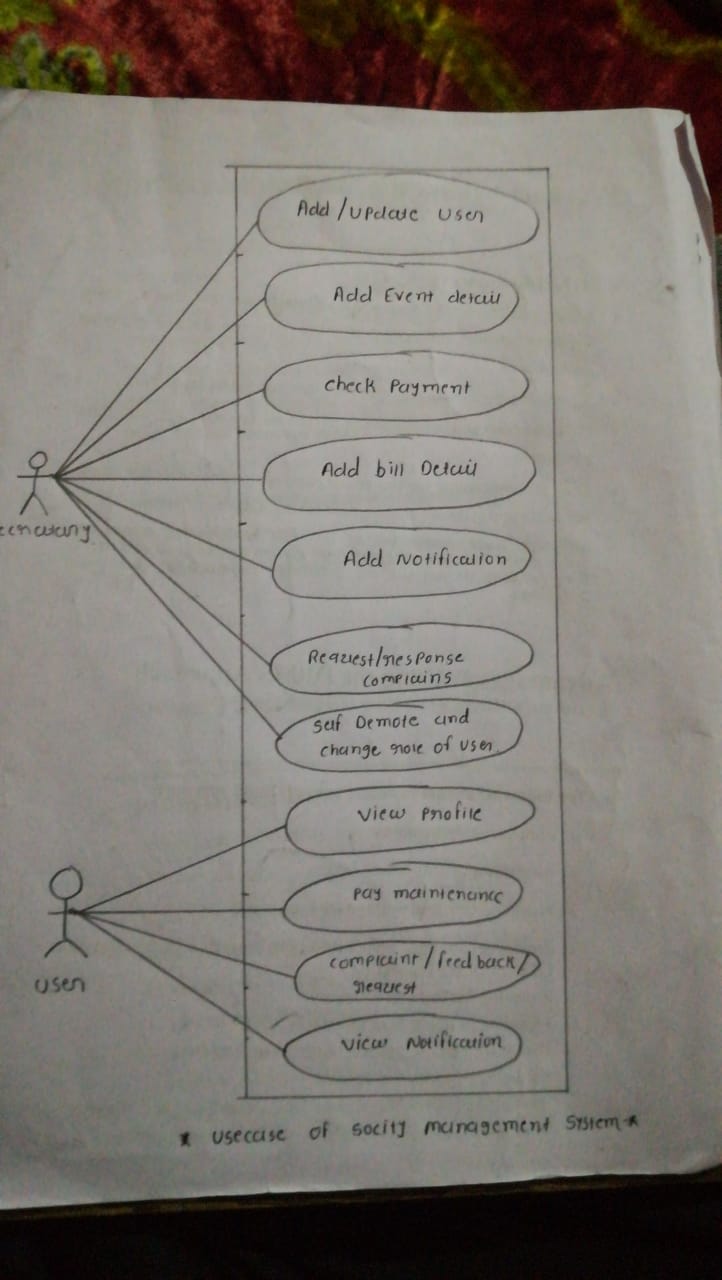 Add/update User
Add Event detail
check Payment
Add bill Detail
Add Notification
Request/response
complains
Self Demote and
change role of user.
View profile
Pay maintenance
complaint/feedback/
request
View Notification
user
* usecase of socity management system *